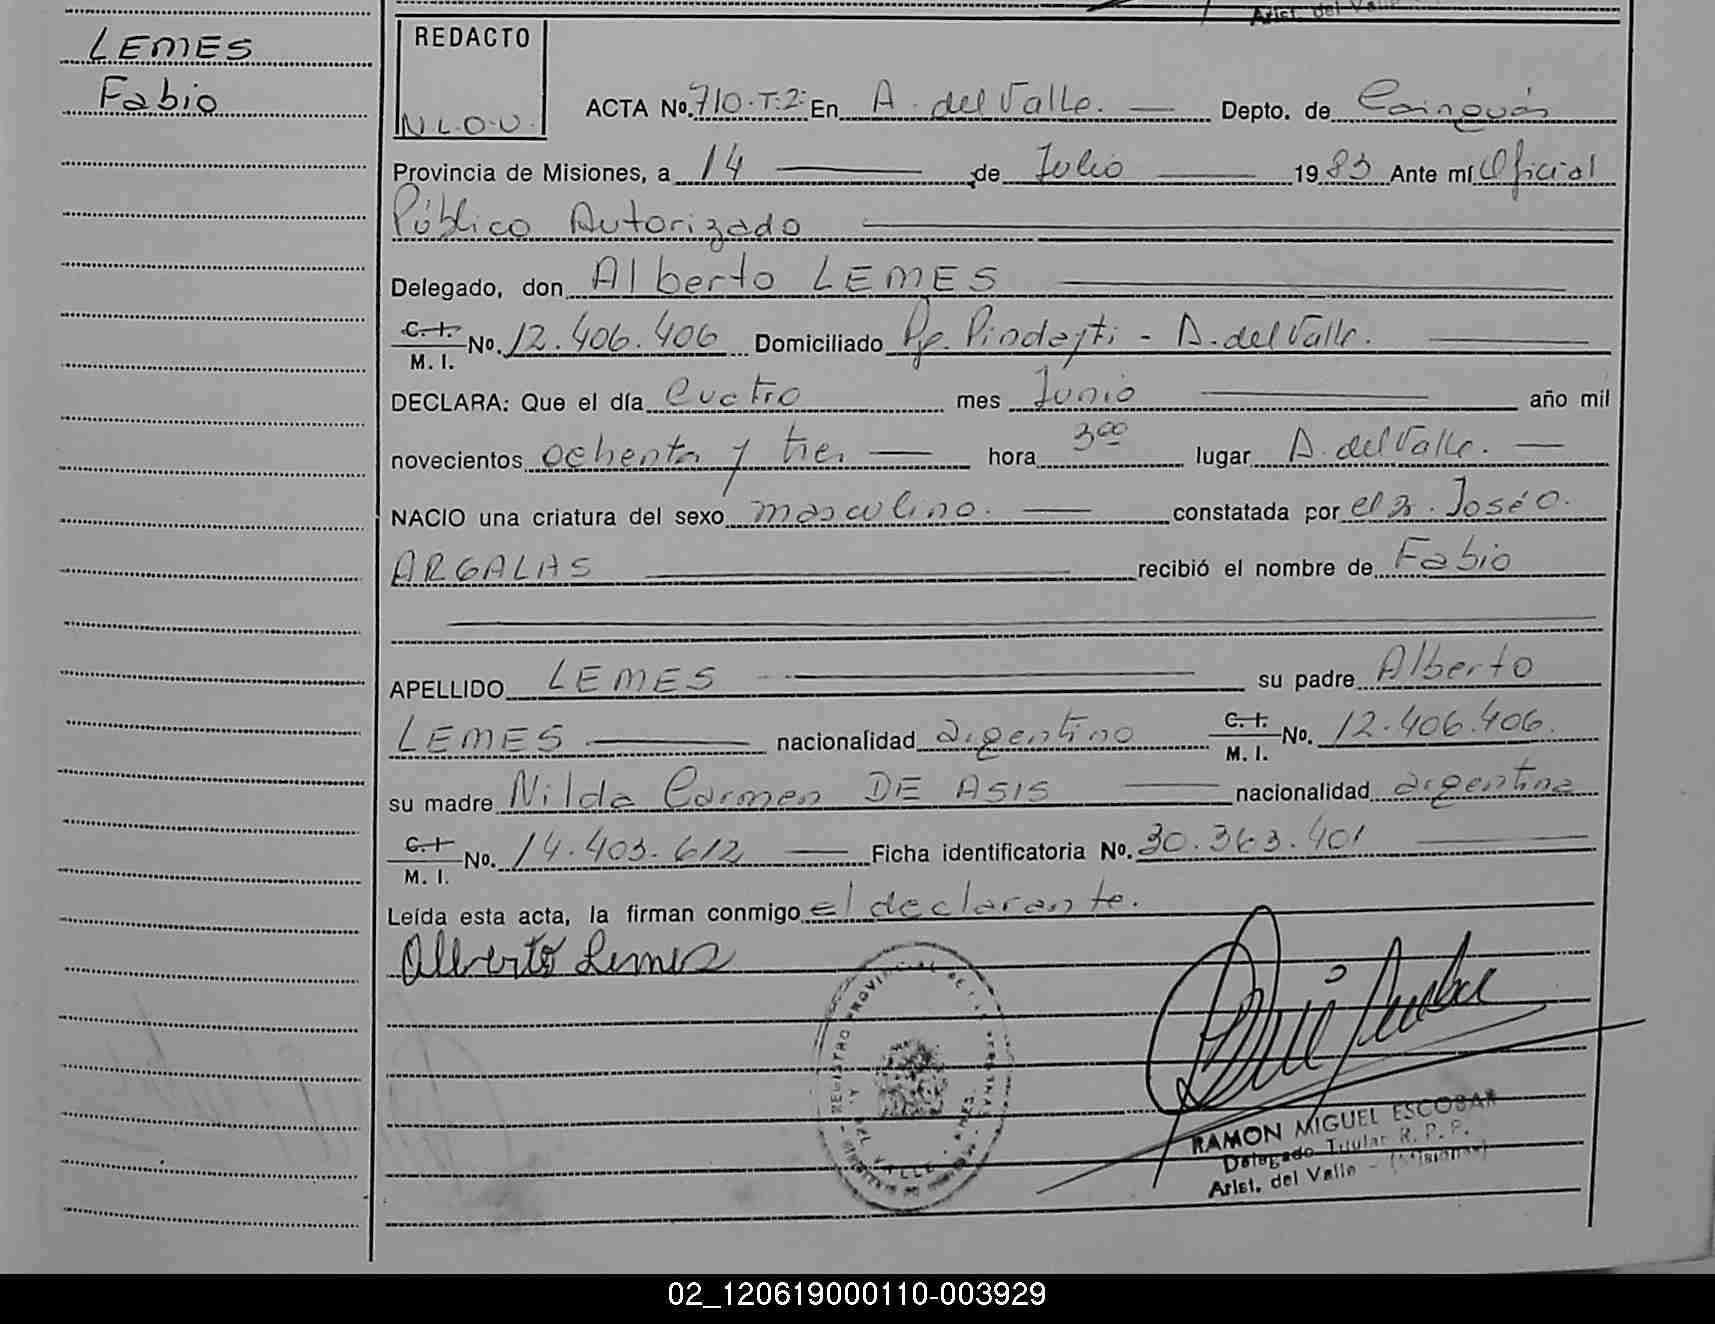 Arist. del Valle
LEMES
Fabio
REDACTO
N.L.O.V.
ACTA Nº. 710.T:2: En A. del Valle. — Depto. de Cainguás
Provincia de Misiones, a 14 — de Julio — 19 83 Ante mí Oficial
Público Autorizado
Delegado, don Alberto LEMES
C. I. M. I. No. 12.406.406 Domiciliado Pje. Pindayti - A. del Valle.
DECLARA: Que el día Cuatro mes Junio — año mil
novecientos ochenta y tres — hora 3 00 lugar A. del Valle. —
NACIO una criatura del sexo masculino. — constatada por el Dr. José O.
ARGALAS — recibió el nombre de Fabio
APELLIDO LEMES — su padre Alberto
LEMES — nacionalidad argentino C. I. M. I. No. 12.406.406.
su madre Nilda Carmen DE ASIS — nacionalidad argentina
C. I. M. I. No. 14.403.612 — Ficha identificatoria Nº. 30.363.401 —
Leída esta acta, la firman conmigo el declarante.
Alberto Lemes
REGISTRO PROVINCIAL DE LAS PERSONAS
DEL VALLE
RAMON MIGUEL ESCOBAR
Delegado Titular R. P. P.
Arist. del Valle - (Misiones)
02_120619000110-003929